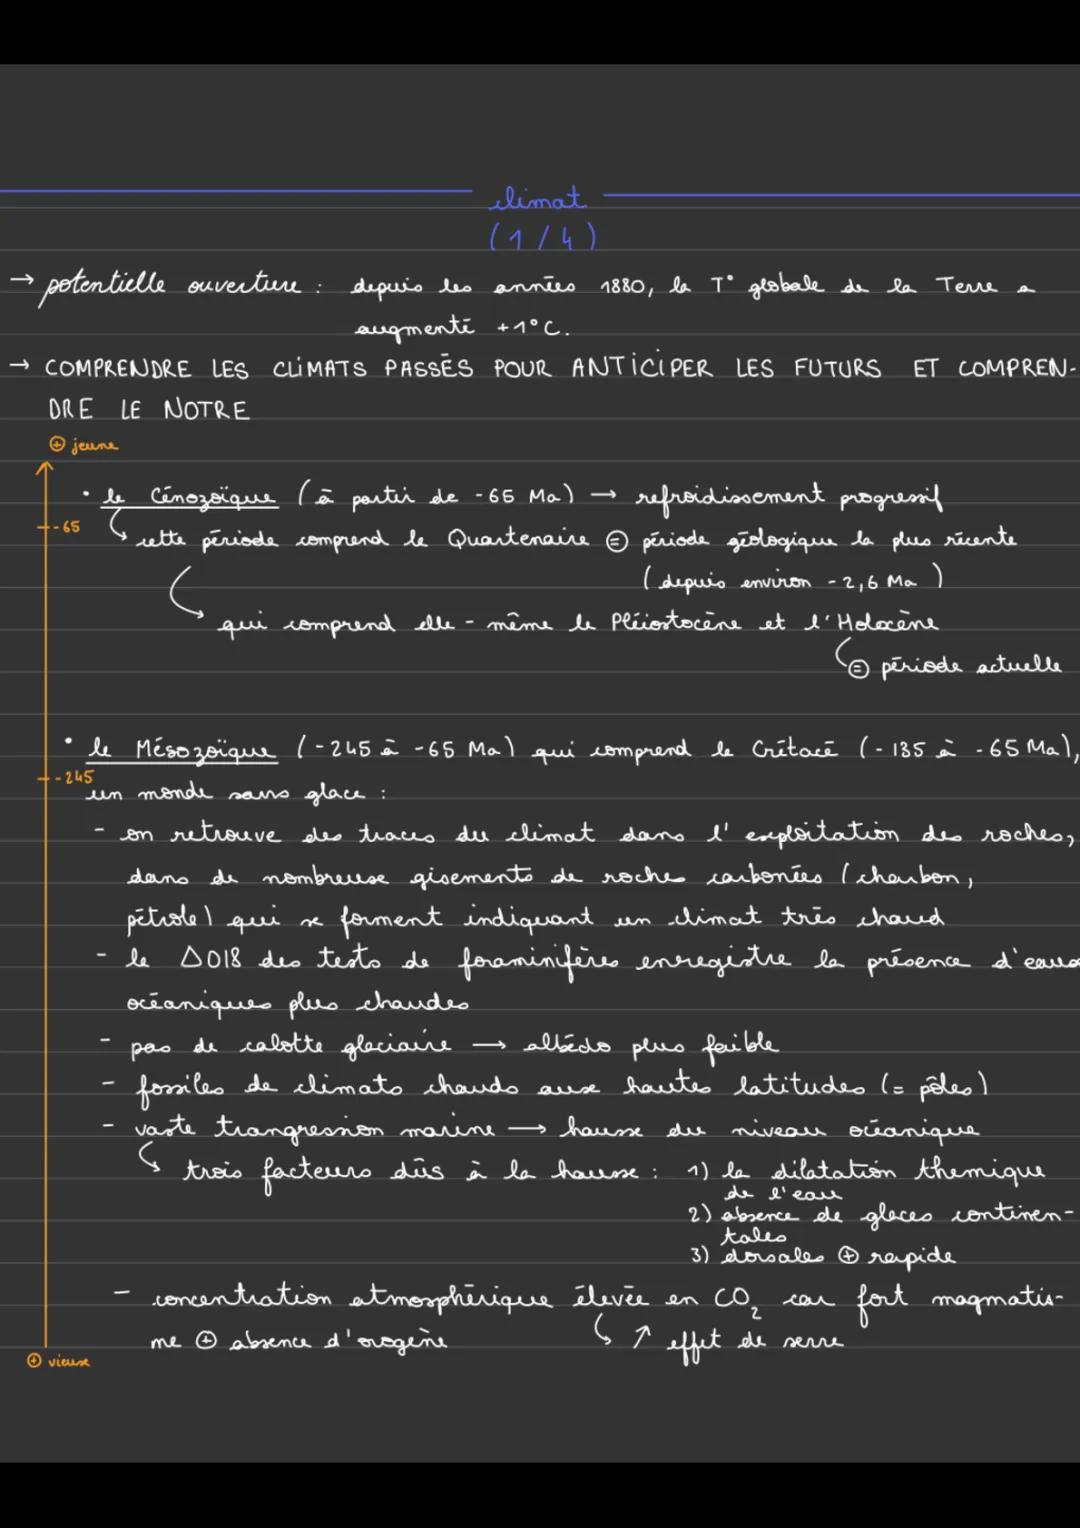 climat
(1/4)
→ potentielle ouverture : depuis les années 1880, la T° globale de la Terre a
augmenté +1°C.
→ COMPRENDRE LES CLIMATS PASSÉS POUR ANTICIPER LES FUTURS ET COMPREN-
DRE LE NOTRE
⊕ jeune
• le Cénozoïque (à partir de -65 Ma) → refroidissement progressif
-65
cette période comprend le Quartenaire ⊜ période géologique la plus récente
(depuis environ -2,6 Ma)
qui comprend elle-même le Pléiostocène et l'Holocène
⊜ période actuelle
• le Mésozoïque (-245 à -65 Ma) qui comprend le Crétacé (-135 à -65 Ma),
-245
un monde sans glace :
- on retrouve des traces du climat dans l'exploitation des roches,
dans de nombreuse gisements de roches carbonées (charbon,
pétrole) qui se forment indiquant un climat très chaud
- le Δ018 des tests de foraminifères enregistre la présence d'eaux
océaniques plus chaudes
- pas de calotte glaciaire → albédo plus faible
- fossiles de climats chauds aux hautes latitudes (= pôles)
- vaste trangression marine → hausse du niveau océanique
trois facteurs dûs à la hausse : 1) la dilatation themique
de l'eau
2) absence de glaces continen-
tales
3) dorsales ⊕ rapide
- concentration atmosphérique élevée en CO₂ car fort magmatis-
me ⊕ absence d'orogène ↗ effet de serre
⊕ vieux